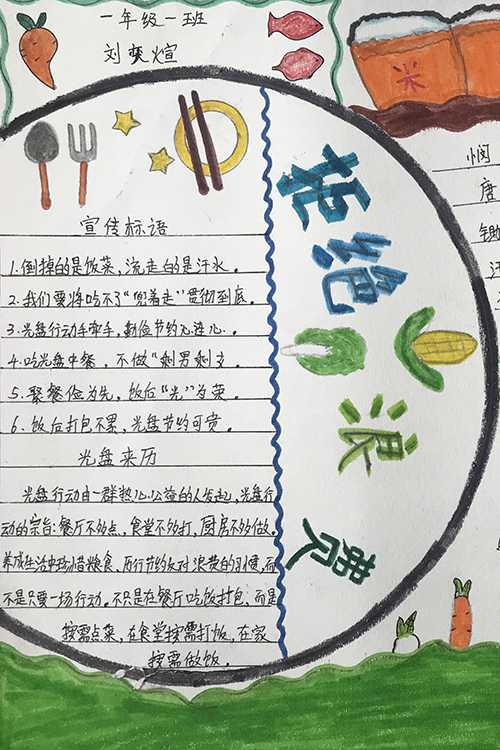 一年级一班
刘奕煊
米
悯
唐
锄
汗
宣传标语
1.倒掉的是饭菜，流走的是汗水。
2.我们要将吃不了“兜着走”贯彻到底。
3.光盘行动手牵手，勤俭节约心连心。
4.吃光盘中餐，不做“剩男剩女。
5.聚餐俭为先，饭后“光”为荣。
6.饭后打包不累，光盘节约可贵。
光盘来历
光盘行动由一群热心公益的人发起，光盘行
动的宗旨：餐厅不多点，食堂不多打，厨房不多做。
养成生活中珍惜粮食、厉行节约反对浪费的习惯，而
不是只要一场行动。不只是在餐厅吃饭打包，而是
按需点菜，在食堂按需打饭，在家
按需做饭。
拒绝
浪
费